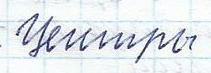 Центры